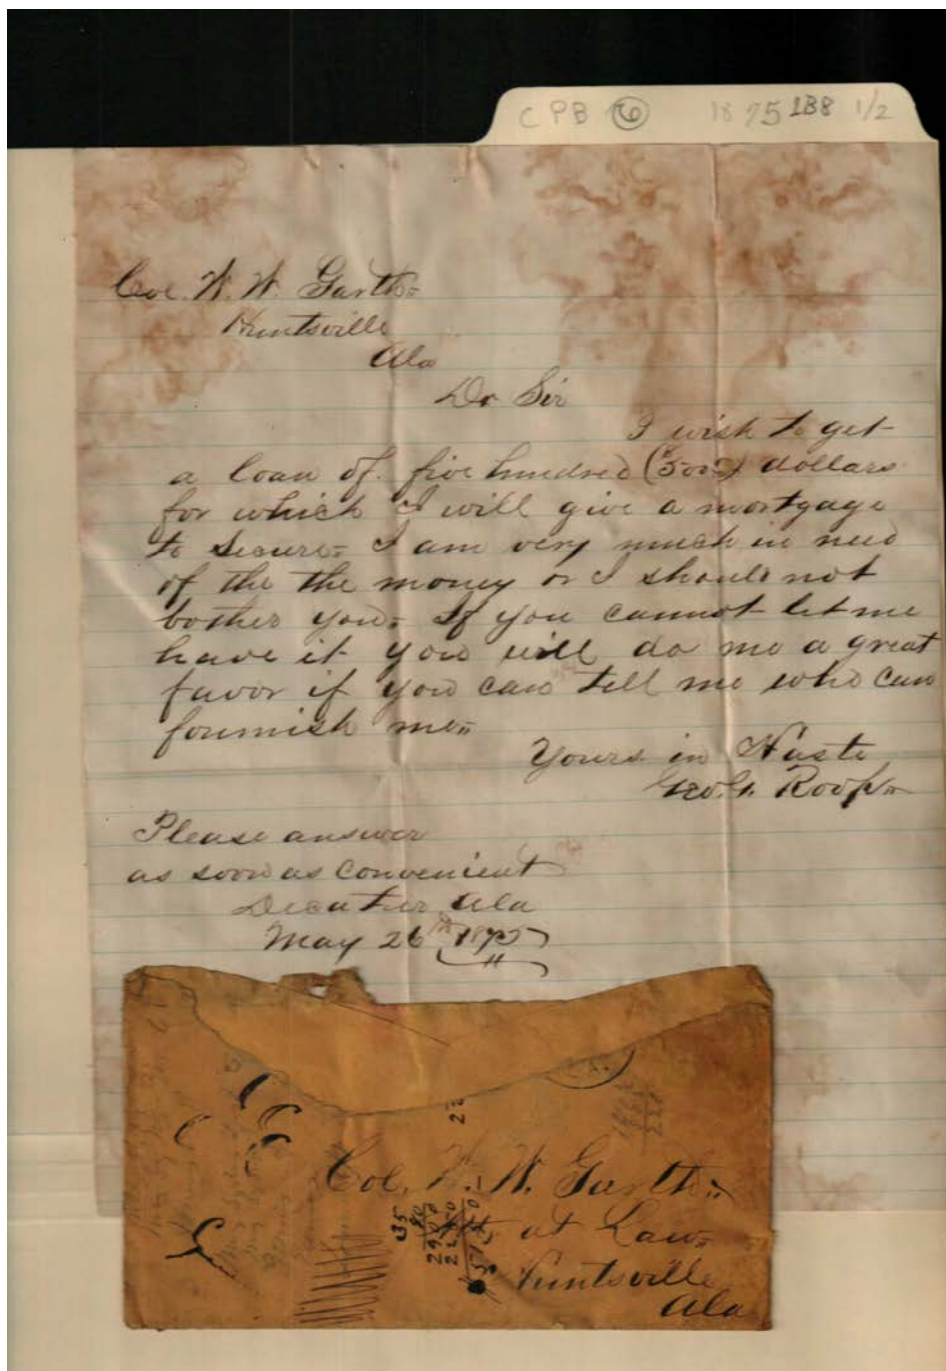 CPB 6 1875 188 1/2
Col. W. W. Garth
Huntsville
Ala
Dr Sir
I wish to get
a loan of five hundred ($500) dollars
for which I will give a mortgage
to secure. I am very much in need
of the the money or I should not
bother you. If you cannot let me
have it you will do me a great
favor if you can tell me who can
fournish me.
Yours in Haste
Geo. Roop
Please answer
as soon as convenient
Decatur Ala
May 26th 1875
Col. W. W. Garth
at Law
Huntsville
Ala
35
80